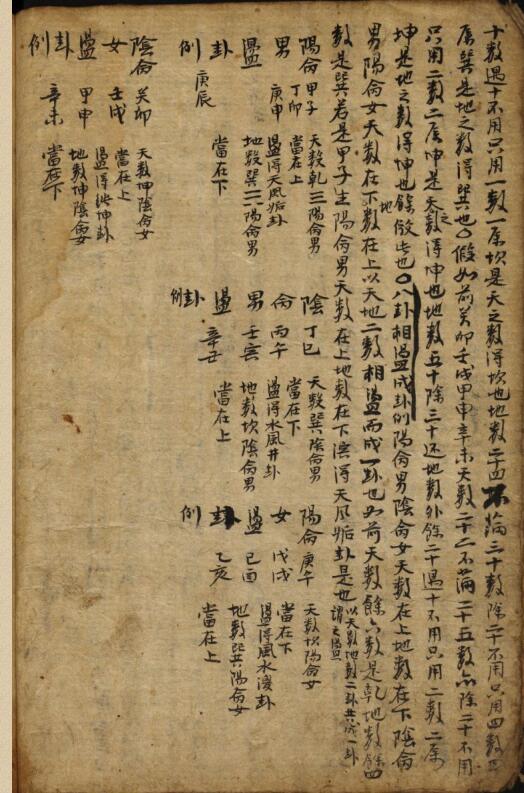 十数遇十不用只用一数一属坎是天之数得坎也地数二十四不满三十数除二十不用只用四数四
属巽是地之数得巽也○假如前癸卯壬戌甲申辛未天数二十二不满二十五数亦除二十不用
只用二数二属坤是天之数得坤也地数五十除三十还地数外餘二十遇十不用只用二数二属
坤是地之数得坤也餘倣此也○八卦相盪成卦例陽命男陰命女天数在上地数在下陰命
男陽命女天数在下地数在上以天地二数相盪而成一卦也如前天数餘六数是乾地数餘四
数是巽若是甲子生陽命男天数在上地数在下湊得天风姤卦是也
以天数地数二卦共成一卦
謂之盪
陽命男盪卦例
甲子
丁卯
庚申
庚辰
天数乾☰陽命男
當在上
盪得天风姤卦
地数巽☴陽命男
當在下
陰命男盪卦例
丁巳
丙午
壬寅
辛丑
天数巽陰命男
當在下
盪得水风井卦
地数坎陰命男
當在上
陽命女盪卦例
庚午
戊戌
己酉
乙亥
天数坎陽命女
當在下
盪得風水渙卦
地数巽陽命女
當在上
陰命女盪卦例
癸卯
壬戌
甲申
辛未
天数坤陰命女
當在上
盪得坤卦
地数坤陰命女
當在下